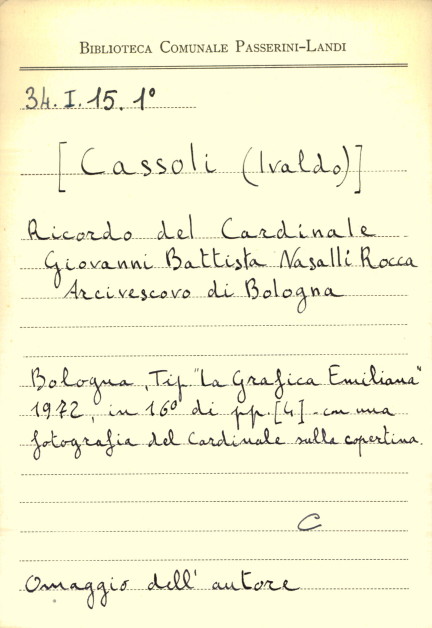 BIBLIOTECA COMUNALE PASSERINI-LANDI
34.I.15.1º
[Cassoli (Ivaldo)]
Ricordo del Cardinale
Giovanni Battista Nasalli Rocca
Arcivescovo di Bologna
Bologna, Tip "La Grafica Emiliana"
1972, in 16º di pp. [4] - con una
fotografia del Cardinale sulla copertina.
C
Omaggio dell' autore